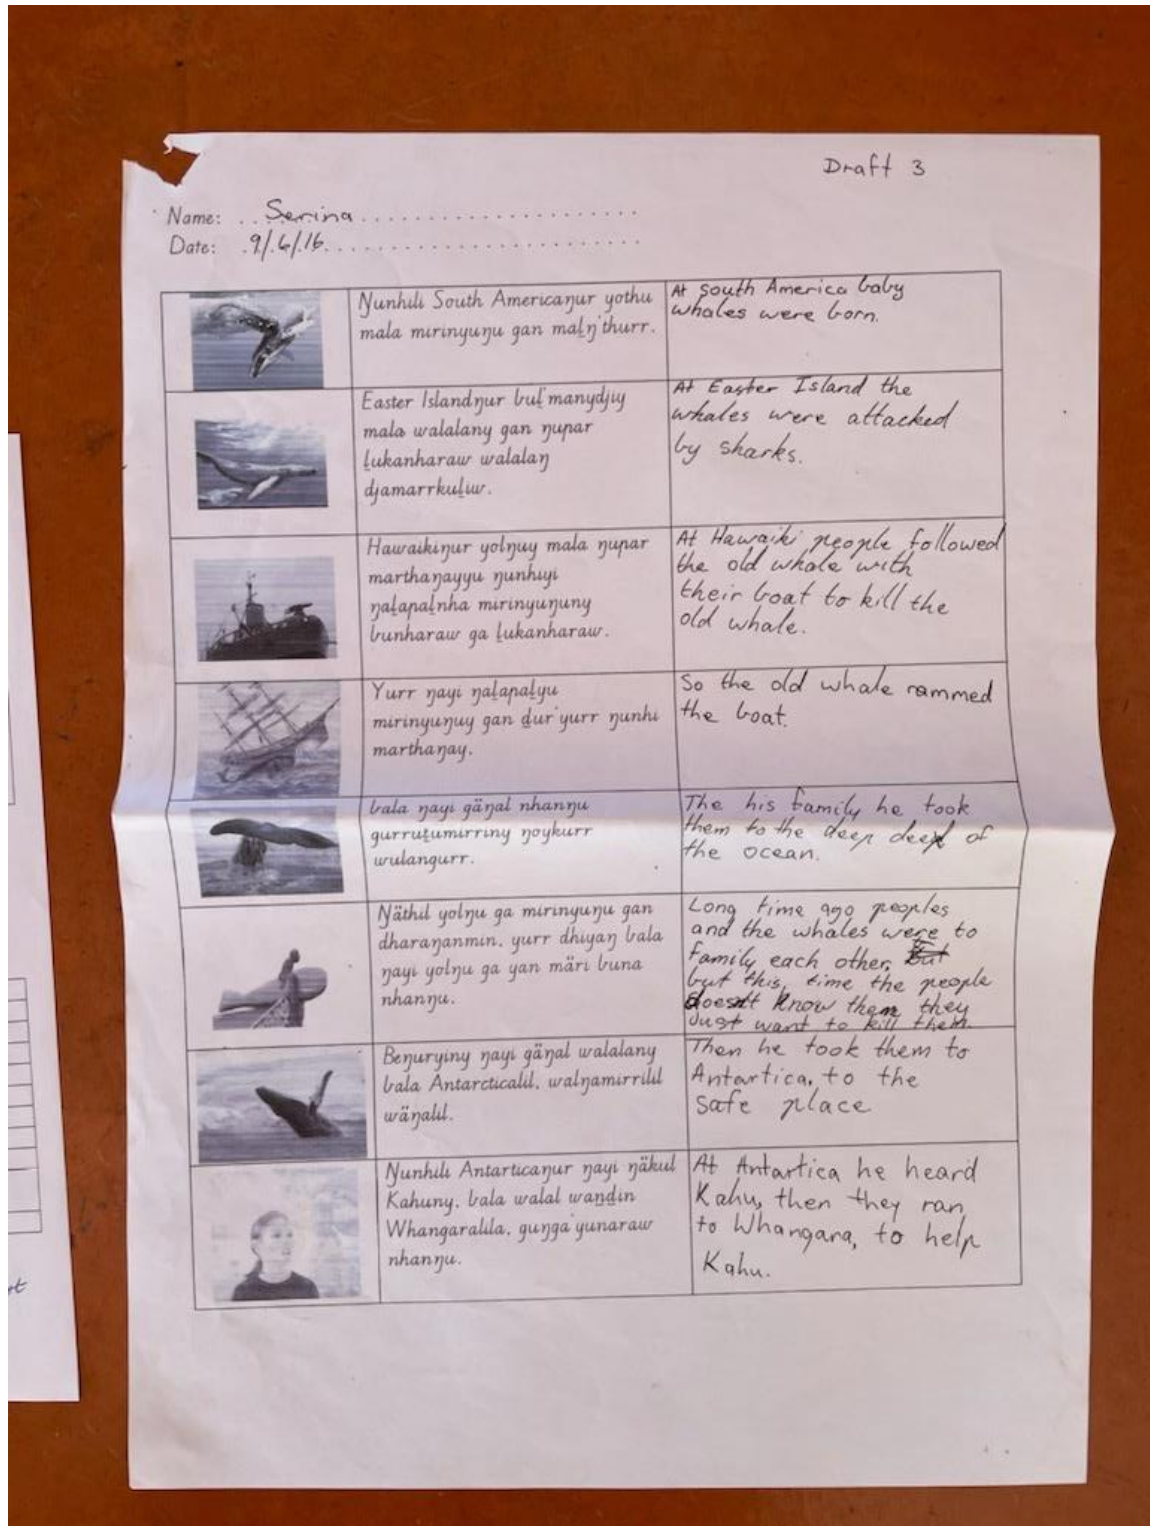 Draft 3
Name: ..Serina......................
Date: .9/.6/.16.........................
Ŋunhili South Americaŋur yothu
mala mirinyuŋu gan maḻŋ'thurr.
At South America baby
whales were born.
Easter Islandŋur buḻ manydjiy
mala walalany gan ŋupar
ḻukanharaw walalaŋ
djamarrkuḻiw.
At Easter Island the
whales were attacked
by sharks.
Hawaikiŋur yolŋuy mala ŋupar
marthaŋayyu ŋunhiyi
ŋaḻapaḻnha mirinyuŋuny
bunharaw ga ḻukanharaw.
At Hawaiki people followed
the old whale with
their boat to kill the
old whale.
Yurr ŋayi ŋaḻapaḻyu
mirinyuŋuy gan ḏur'yurr ŋunhi
marthaŋay.
So the old whale rammed
the boat.
bala ŋayi gäŋal nhanŋu
gurruṯumirriny ŋoykurr
wulangurr.
The his family he took
them to the deep deep of
the ocean.
Ŋäthil yolŋu ga mirinyuŋu gan
dharaŋanmin, yurr dhiyaŋ bala
ŋayi yolŋu ga yan märi buna
nhanŋu.
Long time ago peoples
and the whales were to
family each other, but
but this time the people
doesn't know them they
Just want to kill them.
Beŋuryiny ŋayi gäŋal walalany
bala Antarcticalil, walŋamirrilil
wäŋalil.
Then he took them to
Antartica, to the
safe place
Ŋunhili Antarticaŋur ŋayi ŋäkul
Kahuny, bala walal waṉḏin
Whangaralila, guŋga'yunaraw
nhanŋu.
At Antartica he heard
Kahu, then they ran
to Whangara, to help
Kahu.